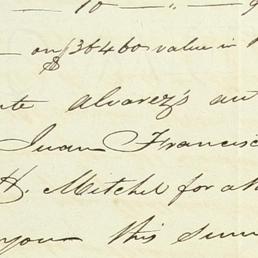 10 — " — 9
— on $36460 value in
Alvarez's
Juan Francis
H. Mitchel for a
you this sum